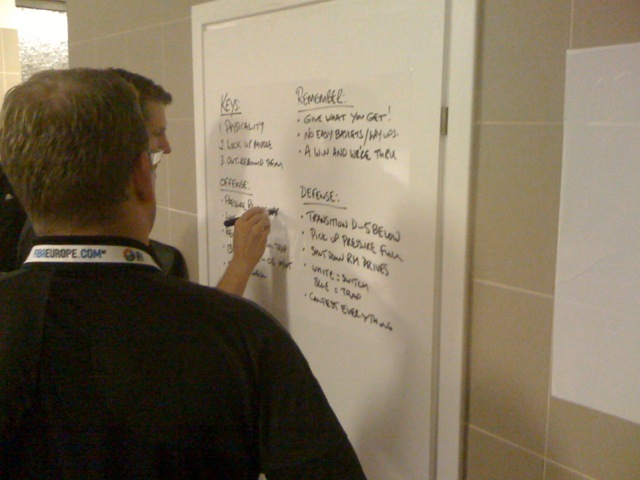 FIBAEUROPE.COM
KEYS:
1. PHYSICALITY
2. LOCK UP
3. OUT-REBOUND THEM
REMEMBER:
• GIVE WHAT YOU GET!
• NO EASY BASKETS/LAYUPS.
• A WIN AND WE'RE THRU
OFFENSE:
• PRESSURE
DEFENSE:
• TRANSITION D-5 BELOW
• PICK UP PRESSURE FULL
• SHUT DOWN RH DRIVES
• WHITE = SWITCH
BLUE = TRAP
• CONTEST EVERYTHING